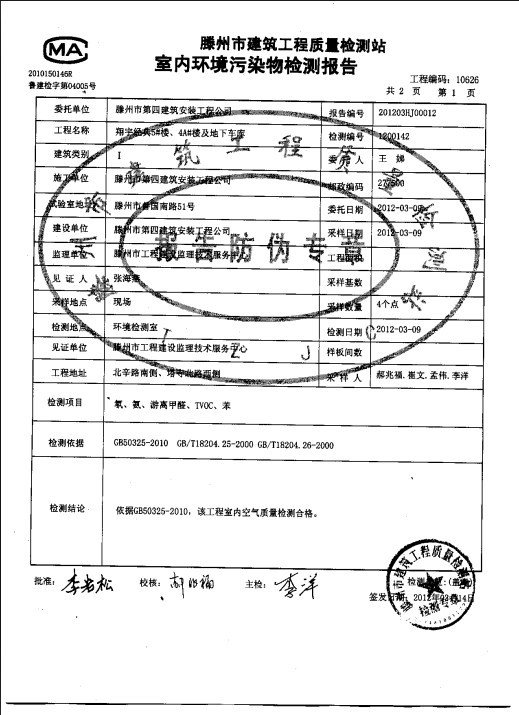 CMA
2010150146R
鲁建检字第04005号
滕州市建筑工程质量检测站
室内环境污染物检测报告
工程编码: 10626
共 2 页 第 1 页
委托单位 滕州市第四建筑安装工程公司 报告编号 201203HJ00012
工程名称 翔宇经典5#楼、4A#楼及地下车库 检测编号 1200142
建筑类别 I 委 人 王 娣
施工单位 滕州市第四建筑安装工程公司 邮政编码 277500
试验室地址 滕州市善国南路51号 委托日期 2012-03-09
建设单位 滕州市第四建筑安装工程公司 采样日期 2012-03-09
监理单位 滕州市工程建设监理技术服务中心 工程
见 证 人 张海 采样基数
采样地点 现场 采样数量 4个点
检测地点 环境检测室 检测日期 2012-03-09
见证单位 滕州市工程建设监理技术服务中心 样板间数
工程地址 北辛路南侧、塔寺北路西侧 采 样 人 郝兆福.崔文.孟伟.李洋
检测项目 氡、氨、游离甲醛、TVOC、苯
检测依据 GB50325-2010 GB/T18204.25-2000 GB/T18204.26-2000
检测结论 依据GB50325-2010，该工程室内空气质量检测合格。
报告防伪专章
T Z J C
批准: 李岩松 校核: 主检: 李洋 检测 :(盖章)
签发日期: 2012年03月14日
滕州市建筑工程质量检测站
检测专章